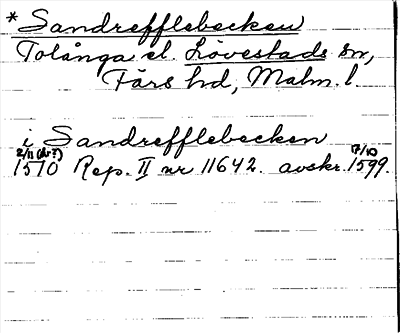 * Sandrefflebecken
Tolånga el. Lövestads sn,
Färs hd, Malm. l.
i Sandrefflebecken
2/11 (år?) 17/10
1570 Rep. II nr 11642. avskr. 1599.